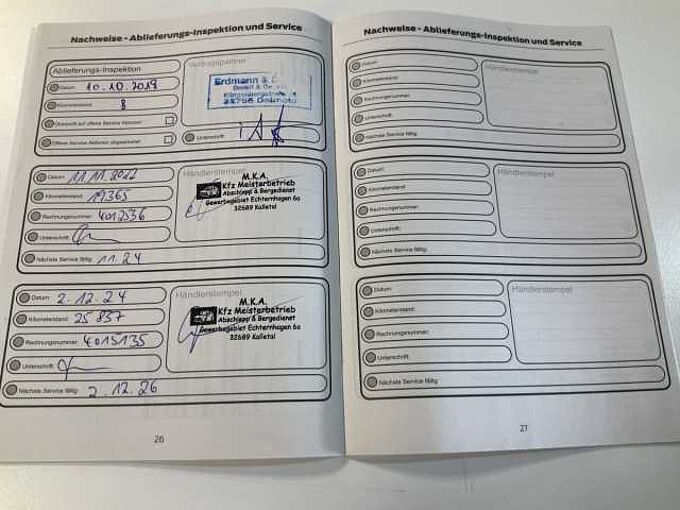 Nachweise - Ablieferungs-Inspektion und Service
Ablieferungs-Inspektion
Datum: 10.10.2019
Kilometerstand: 8
Überprüft auf offene Service Aktionen:
Offene Service Aktionen abgearbeitet:
Vertragspartner
Erdmann &
GmbH & Co
32756 Detmold
Unterschrift:
Datum: 11.11.2022
Kilometerstand: 19365
Rechnungsnummer: 4012536
Unterschrift:
Nächste Service fällig: 11.24
Händlerstempel
M.K.A.
Kfz Meisterbetrieb
Abschlepp & Bergedienst
Gewerbegebiet Echternhagen 6a
32689 Kalletal
Datum: 2.12.24
Kilometerstand: 25 837
Rechnungsnummer: 4015135
Unterschrift:
Nächste Service fällig: 2.12.26
Händlerstempel
M.K.A.
Kfz Meisterbetrieb
Abschlepp & Bergedienst
Gewerbegebiet Echternhagen 6a
32689 Kalletal
26
Nachweise - Ablieferungs-Inspektion und Service
Datum:
Kilometerstand:
Rechnungsnummer:
Unterschrift:
Nächste Service fällig:
Händlerstempel
Datum:
Kilometerstand:
Rechnungsnummer:
Unterschrift:
Nächste Service fällig:
Händlerstempel
Datum:
Kilometerstand:
Rechnungsnummer:
Unterschrift:
Nächste Service fällig:
Händlerstempel
27